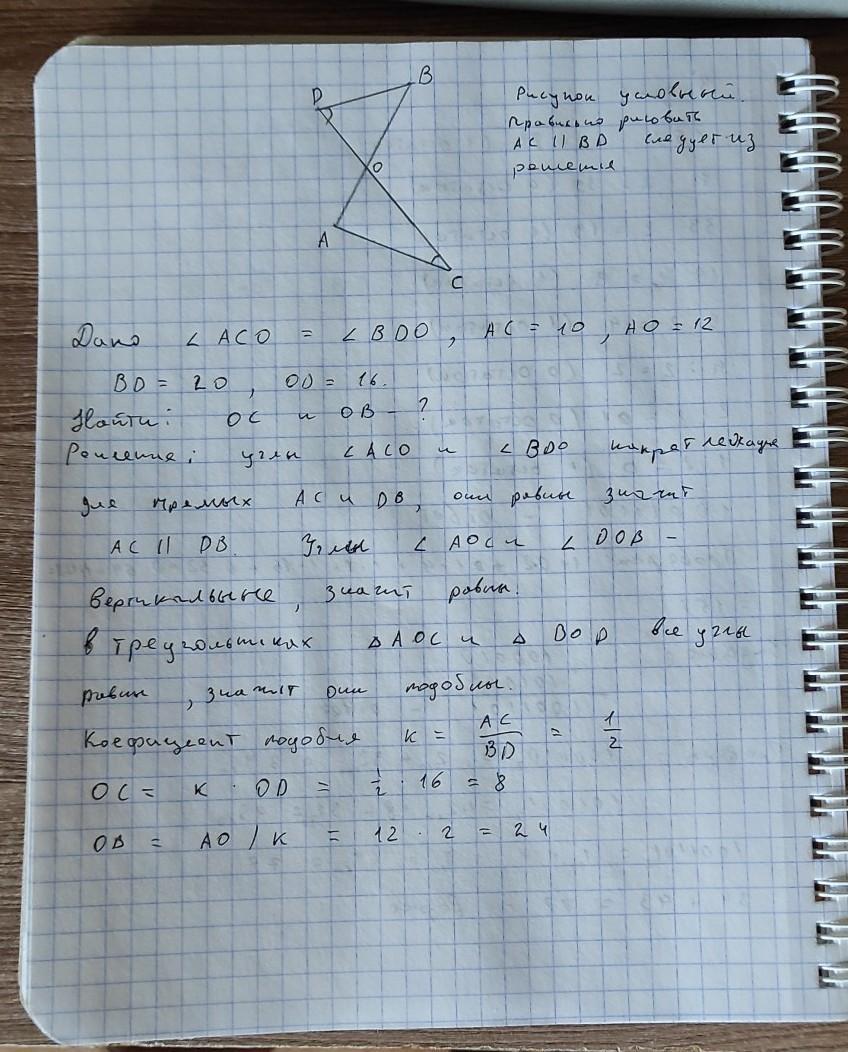 B
D
O
A
C
Рисунок условный.
Правильно рисовать
AC || BD следует из
решения
Дано ∠ ACO = ∠ BDO, AC = 10, AO = 12
BD = 20, OD = 16.
Найти: OC и OB - ?
Решение: углы ∠ ACO и ∠ BDO накрест лежащие
для прямых AC и DB, они равны значит
AC || DB. Углы ∠ AOC и ∠ DOB -
вертикальные, значит равны.
В треугольниках △ AOC и △ BOD все углы
равны, значит они подобны.
Коефициент подобия K = AC/BD = 1/2
OC = K · OD = 1/2 · 16 = 8
OB = AO / K = 12 · 2 = 24